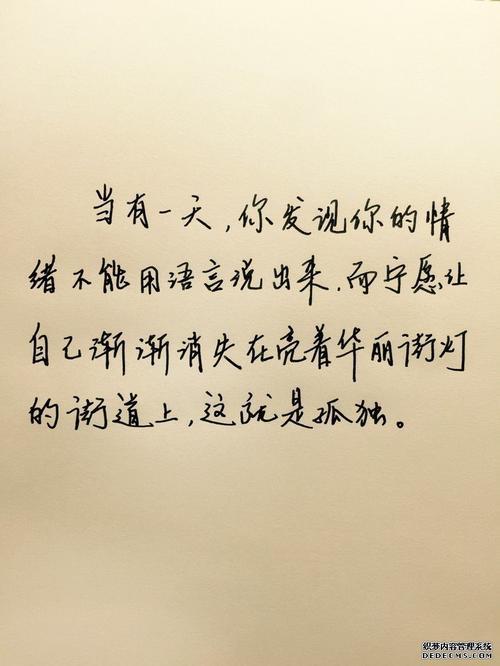 当有一天，你发现你的情
绪不能用语言说出来，而宁愿让
自己渐渐消失在亮着华丽街灯
的街道上，这就是孤独。
织梦内容管理系统
DEDECMS.COM